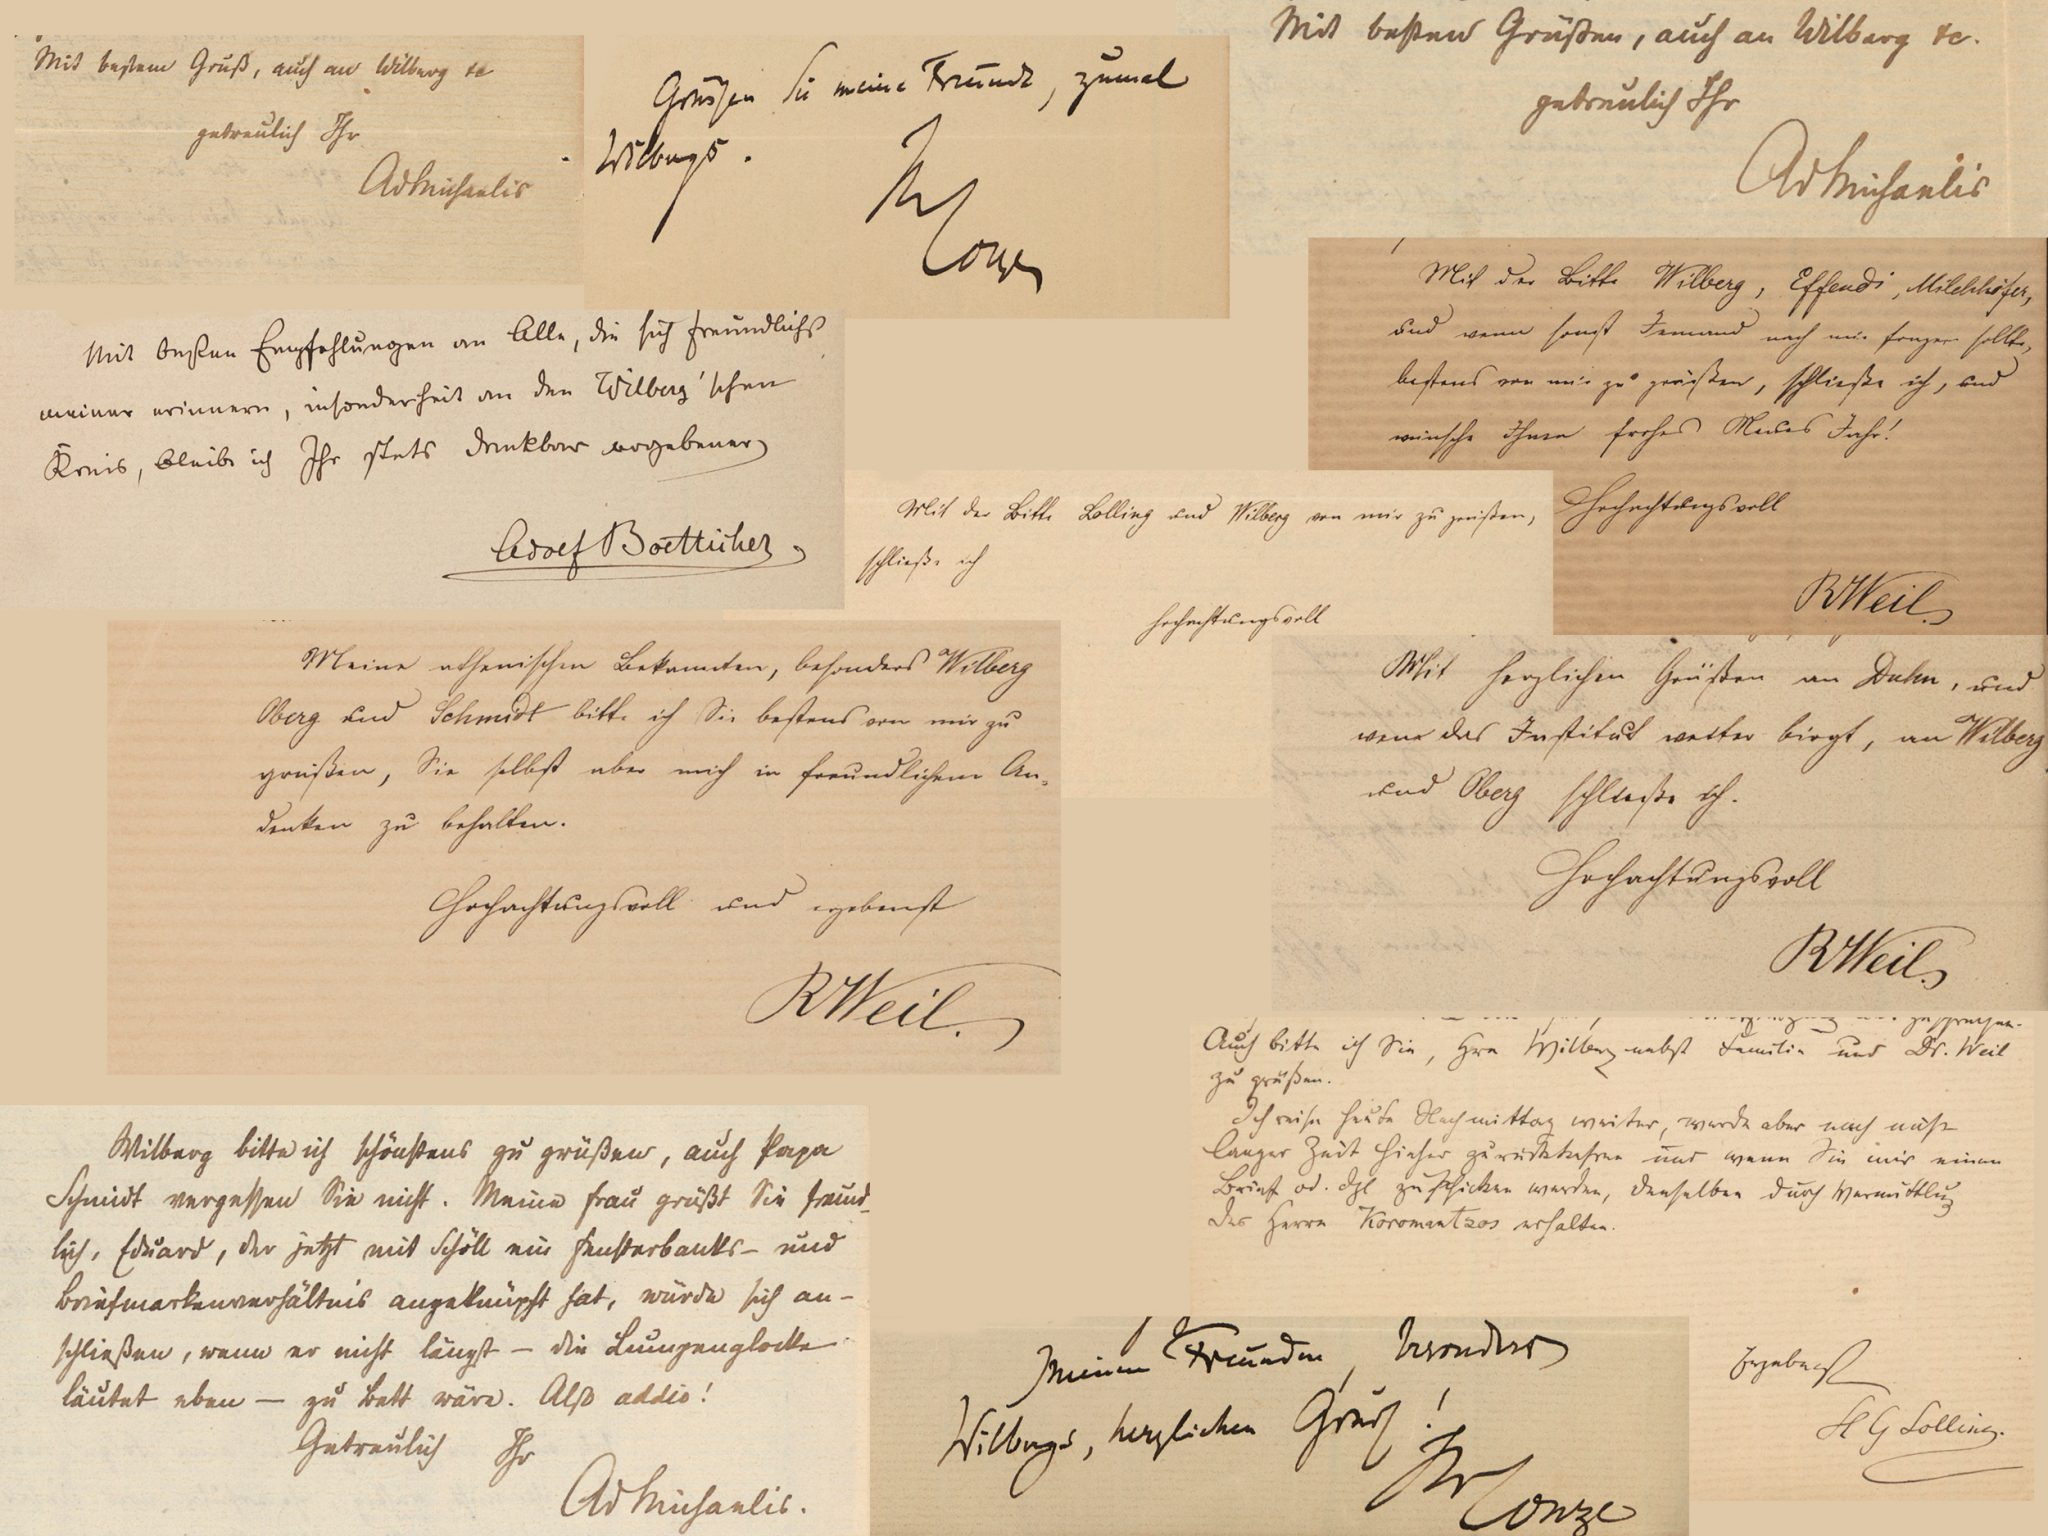 Mit bestem Gruß, auch an Wilberg etc
getreulich Ihr
AdMichaelis
Grüssen Sie meine Freunde, zumal
Wilbergs.
Ihr
Conze
Mit besten Grüßen, auch an Wilberg etc.
getreulich Ihr
AdMichaelis
Mit besten Empfehlungen an Alle, die sich freundlichst
meiner erinnern, insonderheit an den Wilberg'schen
Kreis, bleibe ich Ihr stets dankbar ergebener
Adolf Boetticher
Mit der Bitte Wilberg, Effendi, Milchhöfer,
und wenn sonst Jemand nach mir fragen sollte,
bestens von mir zu grüßen, schließe ich, und
wünsche Ihnen frohes Neues Jahr!
Hochachtungsvoll
RWeil.
Mit der Bitte Lolling und Wilberg von mir zu grüßen,
schließe ich
hochachtungsvoll
Meine athenischen Bekannten, besonders Wilberg
Oberg und Schmidt bitte ich Sie bestens von mir zu
grüßen, Sie selbst aber mich in freundlichem An-
denken zu behalten.
Hochachtungsvoll und ergebenst
RWeil.
Mit herzlichen Grüßen an Duhn, und
wenn das Institut weiter birgt, an Wilberg
und Oberg schließe ich.
Hochachtungsvoll
RWeil.
Auch bitte ich Sie, Hrn Wilberg nebst Familie und Dr. Weil
zu grüßen.
Ich reise heute Nachmittag weiter, werde aber nach nicht
langer Zeit hieher zurückkehren und wenn Sie mir einen
Brief od. dgl zuschicken werden, denselben durch Vermittlung
des Herrn Koromantzos erhalten.
Ergebenst
H G Lolling.
Wilberg bitte ich schönstens zu grüßen, auch Papa
Schmidt vergessen Sie nicht. Meine Frau grüßt Sie freund-
lich, Eduard, der jetzt mit Schöll ein Fensterbanks- und
Briefmarkenverhältnis angeknüpft hat, würde sich an-
schließen, wenn er nicht längst – die Lumpenglocke
läutet eben – zu Bett wäre. Also addio!
Getreulich Ihr
AdMichaelis.
Meinen Freunden, besonders
Wilbergs, herzlichen Gruß!
Ihr
Conze